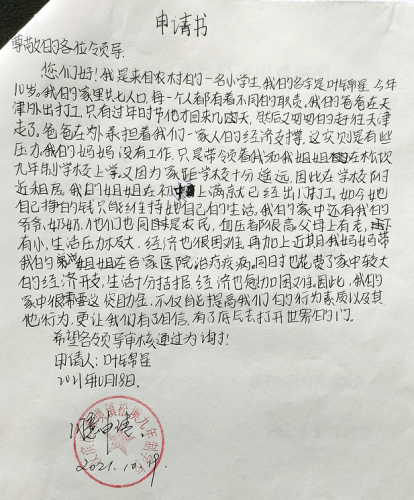 申请书
尊敬的各位领导:
您们好!我是来自农村的一名小学生,我的名字是叶锦星,今年
10岁。我的家里共七人口,每一个人都有着不同的职责。我的爸爸在天
津外出打工,只有过年时节他才回来几四天,然后又匆匆的赶往天津
走了。爸爸在外承担着我们一家人的经济支撑,这实则是有些
压力。我的妈妈没有工作,只是带领着我和我姐姐在松坎
九年制小学校上学。又因为家距学校十分遥远,因此在学校附
近租房。我的姐姐在初中上满就已经出门打工。如今她
自己挣的钱只能维持她自己的生活。我的家中还有我的
爷爷、奶奶。他们也同自是农民,但压着那很高,父母上有老,下
有小,生活压力巨大。经济也很困难。再加上近期我妈妈带
我的姐姐在各家医院治疗疾病。同时也花费了家中较大
的经济开支,生活十分拮据,经济也愈加困难。因此,我们的
家中很需要这资助金。不仅能提高我们的行为素质以及其
他行为,更让我们有了自信,有了底气去打开世界的门。
希望各领导审核通过为谢!
申请人:叶锦星
2021年10月18日.
同意申请.
2021.10.19